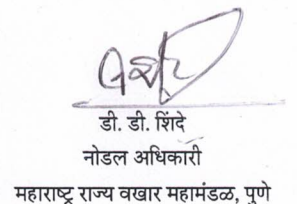 डी. डी. शिंदे
नोडल अधिकारी
महाराष्ट्र राज्य वखार महामंडळ, पुणे